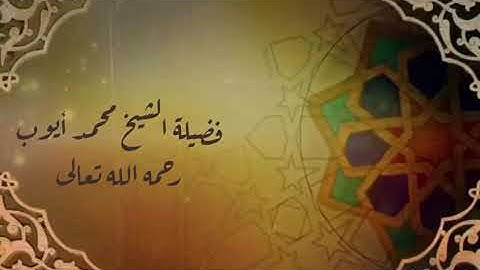 فضيلة الشيخ محمد أيوب
رحمه الله تعالى